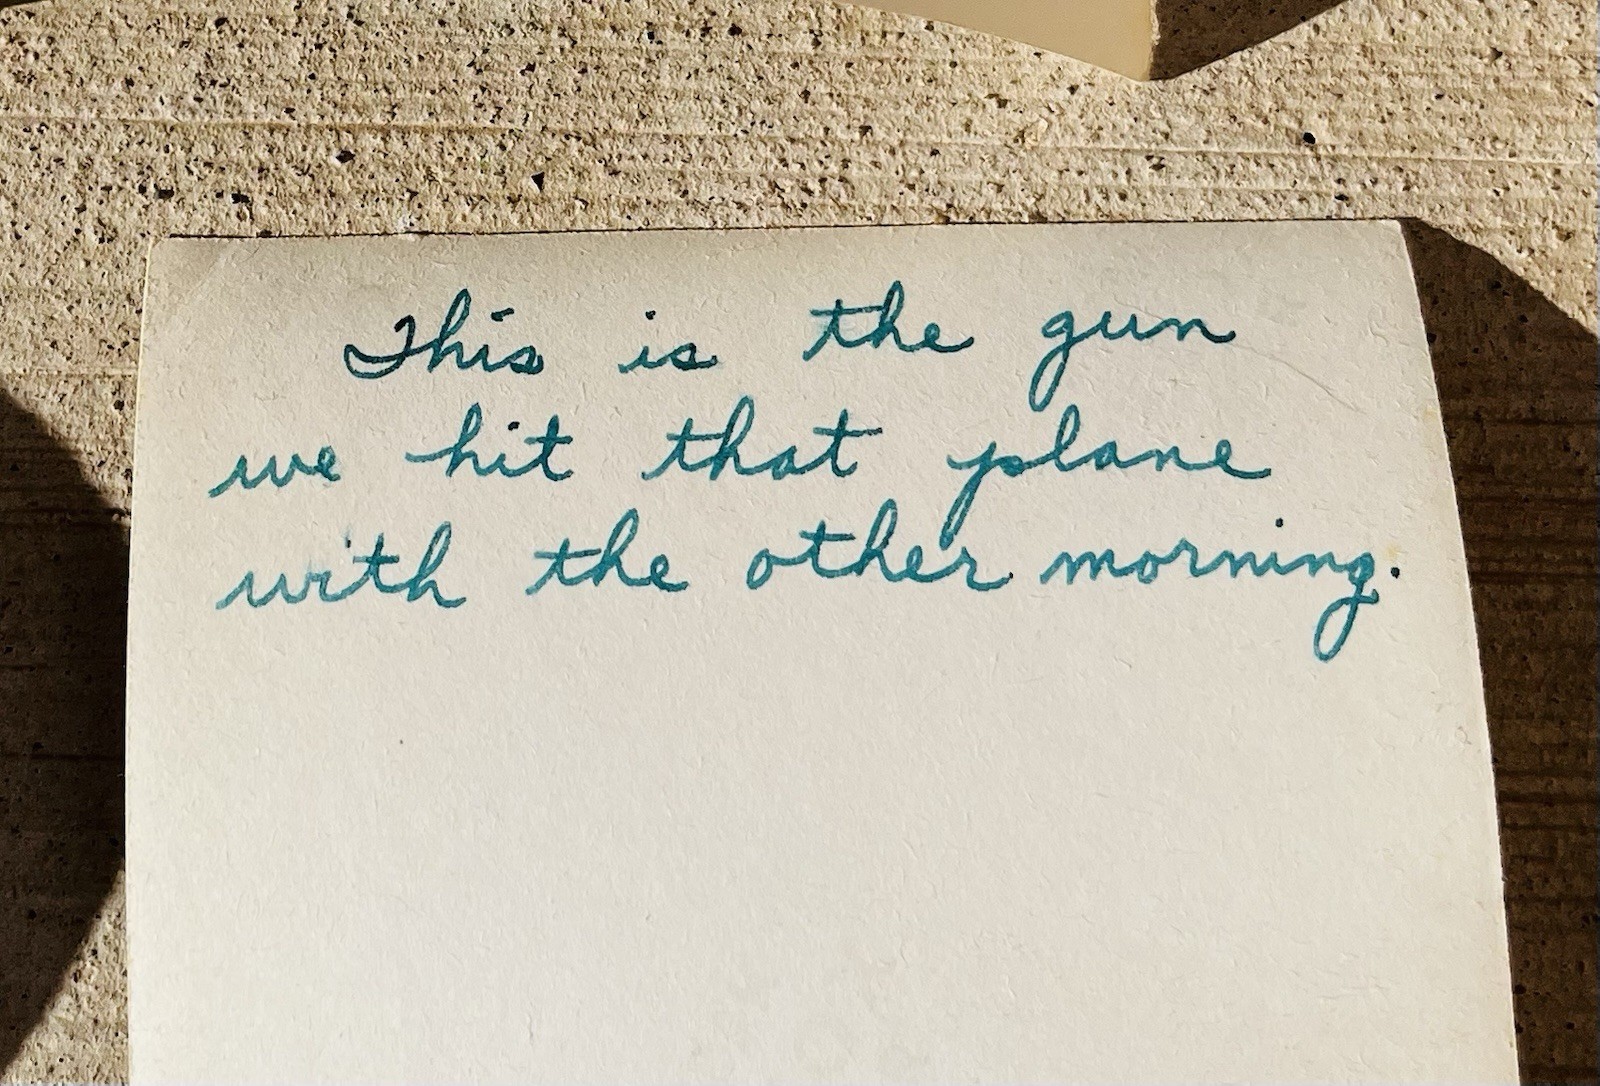 This is the gun
we hit that plane
with the other morning.